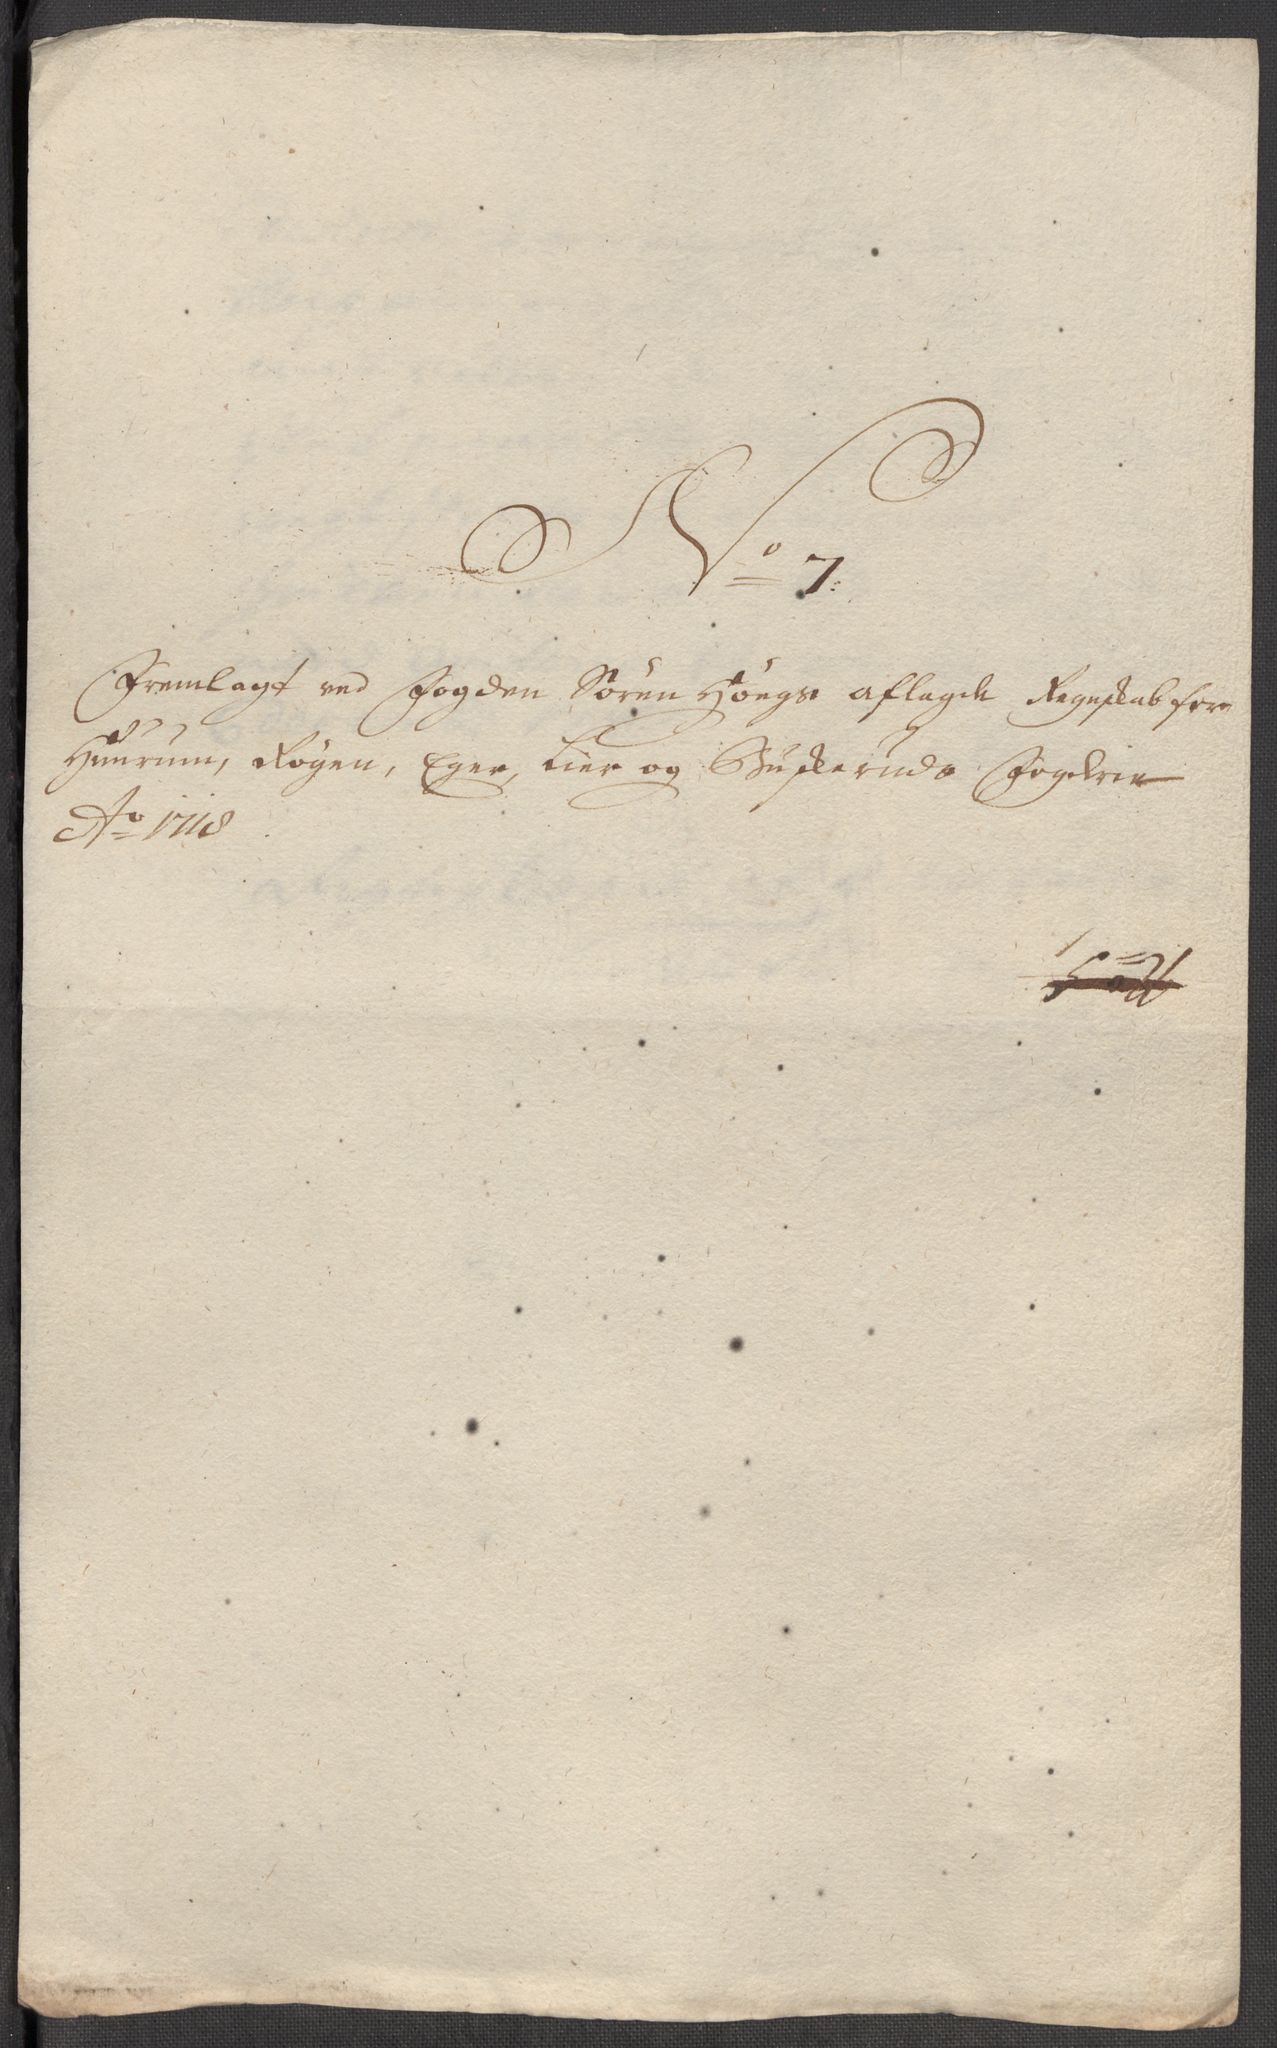 No 7:
Fremlagt ved Fogden Sören Höegs aflagde Regnskab for
Huurum, Røgen, Eger, Lier og Buskeruds Fogderie
Ao 1718